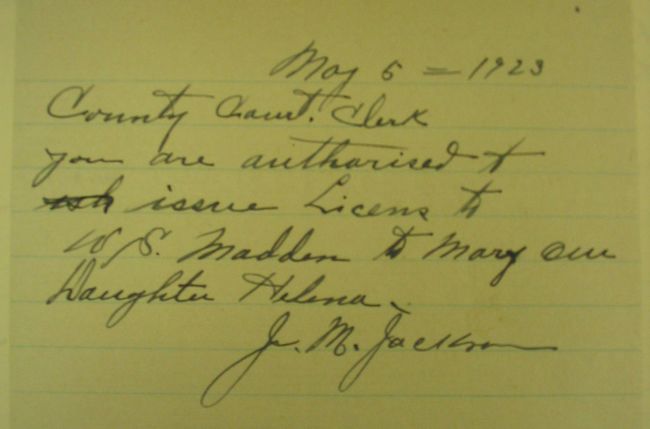 May 5 = 1923
County Court. Clerk
you are authorised t
issue Licens to
W S. Madden to Mary our
Daughter Helena.
J. M. Jackson